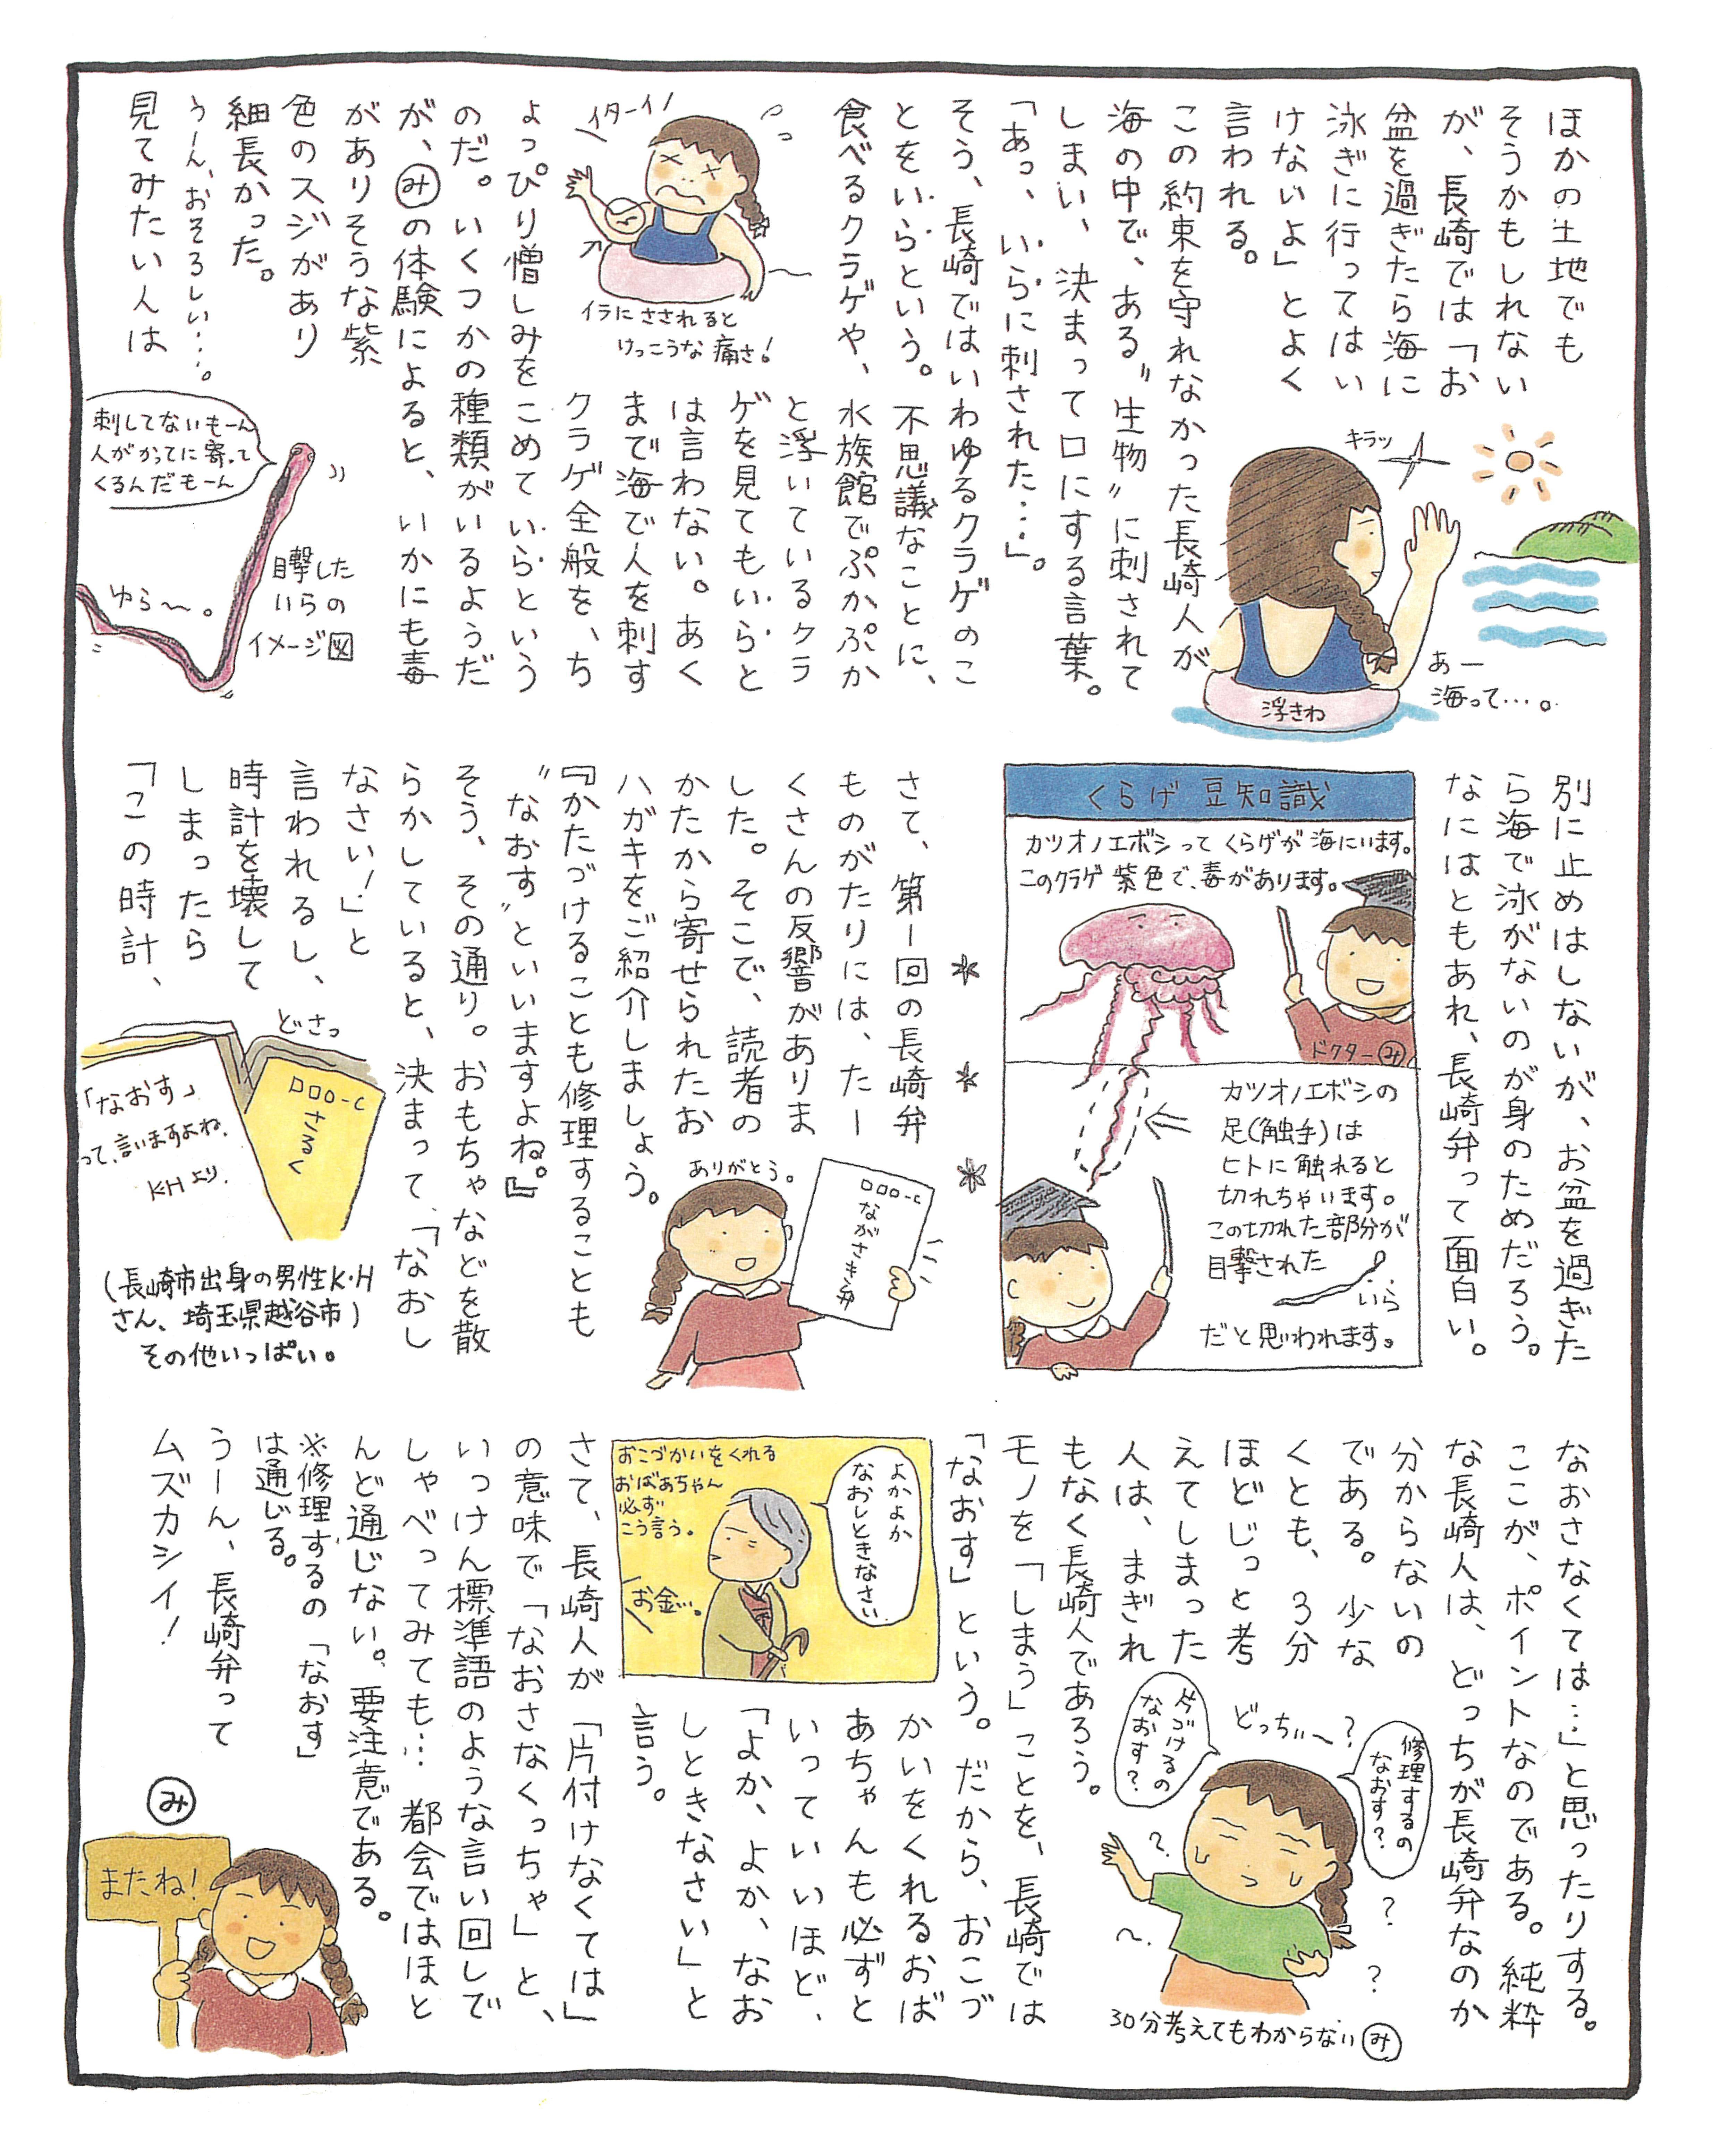 ほかの土地でも
そうかもしれない
が、長崎では「お
盆を過ぎたら海に
泳ぎに行ってはい
けないよ」とよく
言われる。
この約束を守れなかった長崎人が
海の中で、ある〝生物〟に刺されて
しまい、決まって口にする言葉。
「あっ、いらに刺された…。」
そう、長崎ではいわゆるクラゲのこ
とをいらという。不思議なことに、
食べるクラゲや、水族館でぷかぷか
と浮いているクラ
ゲを見てもいらと
は言わない。あく
まで海で人を刺す
クラゲ全般を、ち
ょっぴり憎しみをこめていらという
のだ。いくつかの種類がいるようだ
が、みの体験によると、いかにも毒
がありそうな紫
色のスジがあり
細長かった。
うーん、おそろしい…。
見てみたい人は
キラッ
あー
海って…。
浮きわ
イターイ!
イラにさされると
けっこうな痛さ!
刺してないもーん
人がかってに寄って
くるんだもーん
ゆら〜。
目撃した
いらの
イメージ図
別に止めはしないが、お盆を過ぎた
ら海で泳がないのが身のためだろう。
なにはともあれ、長崎弁って面白い。
くらげ 豆知識
カツオノエボシってくらげが海にいます。
このクラゲ紫色で、毒があります。
ドクターみ
カツオノエボシの
足(触手)は
ヒトに触れると
切れちゃいます。
この切れた部分が
目撃された
いら
だと思われます。
* * *
さて、第一回の長崎弁
ものがたりには、たー
くさんの反響がありま
した。そこで、読者の
かたから寄せられたお
ハガキをご紹介しましょう。
『かたづけることも修理することも
〝なおす〟といいますよね。』
そう、その通り。おもちゃなどを散
らかしていると、決まって、「なおし
なさい!」と
言われるし、
時計を壊して
しまったら
「この時計、
ありがとう。
ロロo-c
ながさき弁
どさっ
ロロo-c
さるく
「なおす」
って、言いますよね。
KHより。
(長崎市出身の男性K・H
さん、埼玉県越谷市)
その他いっぱい。
なおさなくては…」と思ったりする。
ここが、ポイントなのである。純粋
な長崎人は、どっちが長崎弁なのか
分からないの
である。少な
くとも、3分
ほどじっと考
えてしまった
人は、まぎれ
もなく長崎人であろう。
モノを「しまう」ことを、長崎では
「なおす」という。だから、おこづ
かいをくれるおば
あちゃんも必ずと
いっていいほど、
「よか、よか、なお
しときなさい」と
言う。
修理するの
なおす?
どっちぃ〜?
片づけるの
なおす?
?
?
?
30分考えてもわからないみ
おこづかいをくれる
おばあちゃん
必ず
こう言う。
よかよか
なおしときなさい
お金…。
さて、長崎人が「片付けなくては」
の意味で「なおさなくっちゃ」と、
いっけん標準語のような言い回しで
しゃべってみても…都会ではほと
んど通じない。要注意である。
※修理するの「なおす」
は通じる。
うーん、長崎弁って
ムズカシイ!
み
またね!